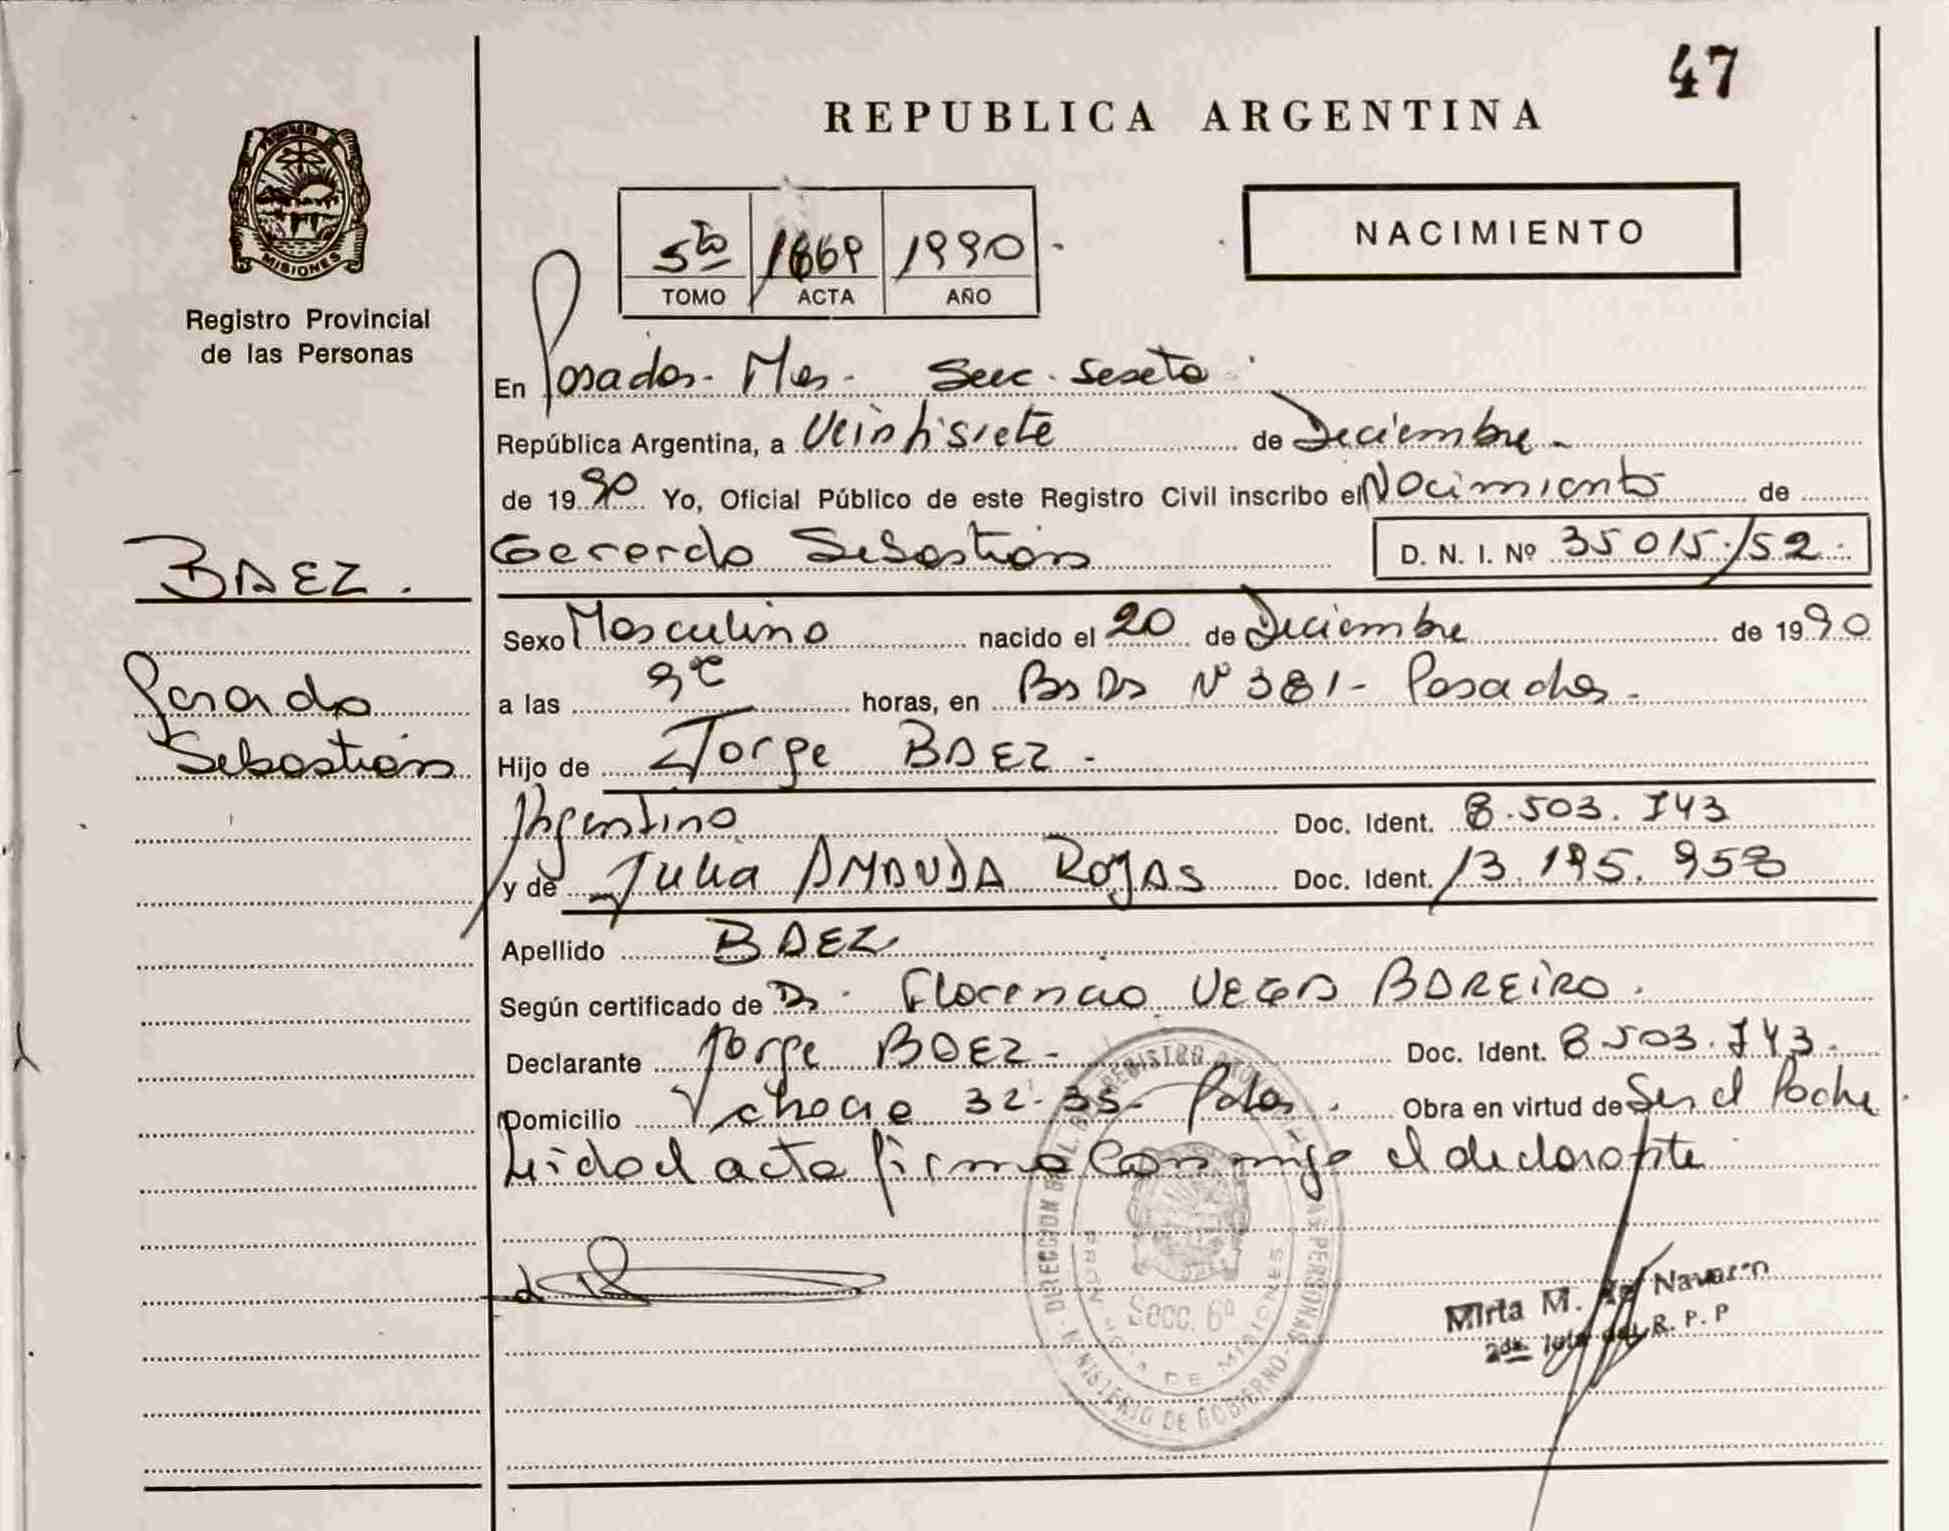 47
REPUBLICA ARGENTINA
MISIONES
Registro Provincial
de las Personas
5to 1669 1990
TOMO ACTA AÑO
NACIMIENTO
En Posadas - Mnes - Secc. Sexta
República Argentina, a Veintisiete de Diciembre
de 1990 Yo, Oficial Público de este Registro Civil inscribo el Nacimiento de
BAEZ. Gerardo Sebastián D. N. I. Nº 35015152
Sexo Masculino nacido el 20 de Diciembre de 1990
Gerardo a las horas, en Bs As Nº 381 - Posadas -
Sebastián Hijo de Jorge BAEZ -
Argentino Doc. Ident. 8.503.743
y de Julia AMANDA ROJAS Doc. Ident. 13.195.958
Apellido BAEZ
Según certificado de Dr. Florencio VEGA BAREIRO.
Declarante Jorge BAEZ - Doc. Ident. 8.503.743.
Domicilio 32-33 - Pdas. Obra en virtud de Ser el Padre
Leido el acta firma conmigo el declarante
DIRECCION GRAL. DEL REGISTRO PROVINCIAL DE LAS PERSONAS
MINISTERIO DE GOBIERNO
PROVINCIA DE MISIONES
Secc. 6ª
Mirta M. de Navarro
2da R. P. P